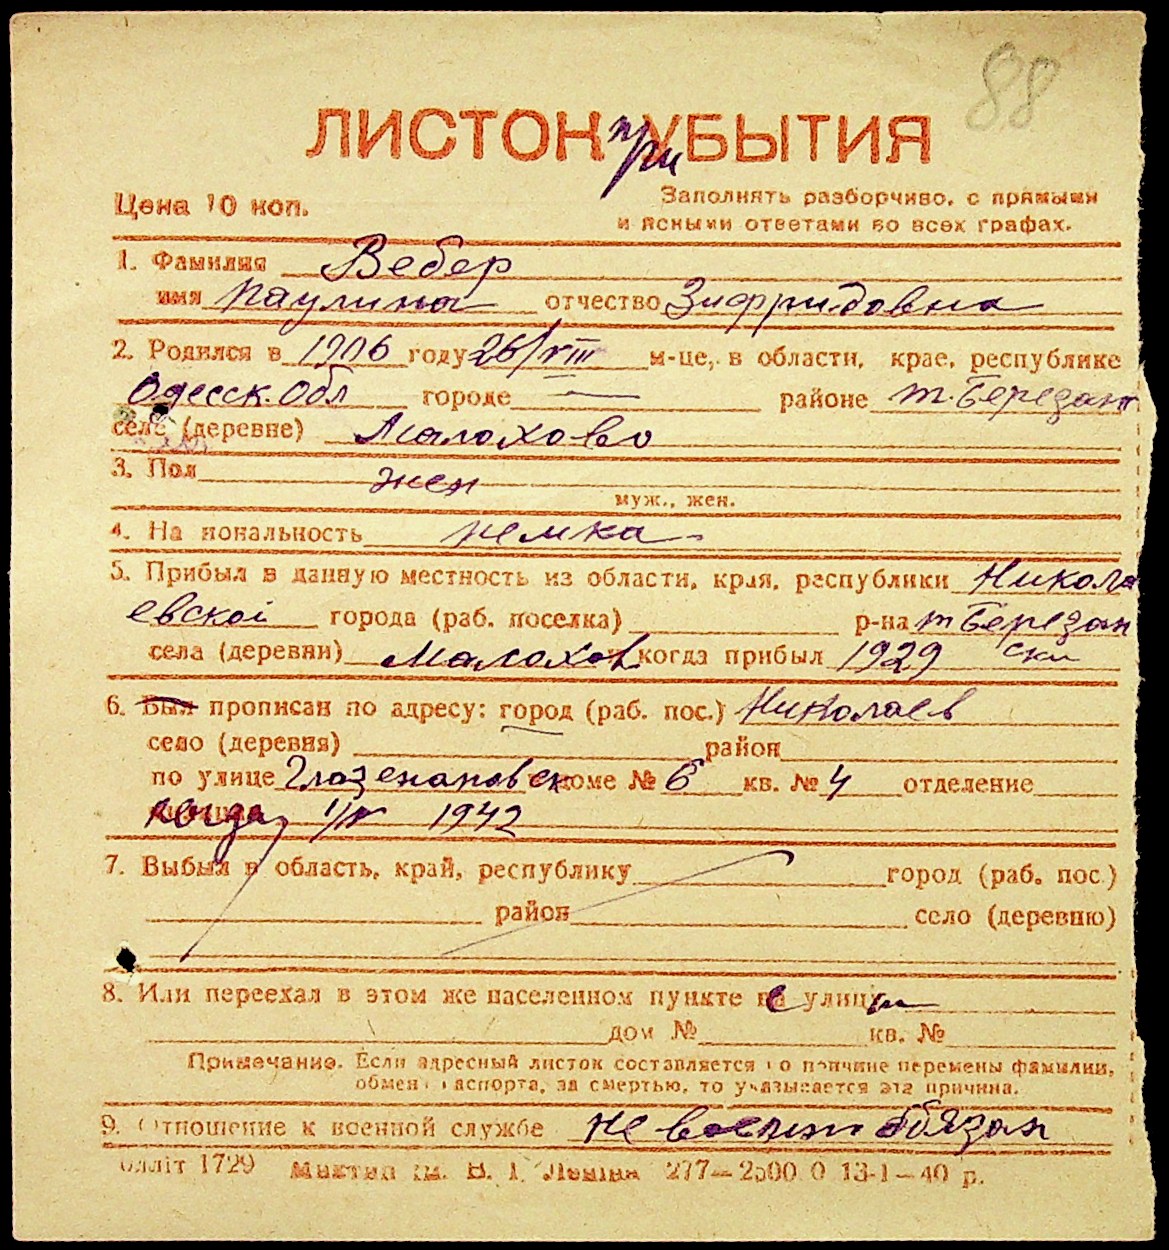 88
ЛИСТОК при УБЫТИЯ
Цена 10 коп.
Заполнять разборчиво, с прямыми
и ясными ответами во всех графах.
1. Фамилия Вебер
имя Паулина отчество Зифридовна
2. Родился в 1906 году 26/VIII м-це, в области, крае, республике
Одесск. Обл городе — районе т. Березан
селе (деревне) Малохово
3. Пол жен
муж., жен.
4. Национальность немка
5. Прибыл в данную местность из области, края, республики Никола
евской города (раб. поселка) р-на т Березан
села (деревни) Малохов когда прибыл 1929 ски
6. Был прописан по адресу: город (раб. пос.) Николаев
село (деревня) район
по улице Глазенаповск доме № 6 кв. № 4 отделение
когда 1942
7. Выбыл в область, край, республику город (раб. пос.)
район село (деревню)
8. Или переехал в этом же населенном пункте с улицы
дом № кв. №
Примечание. Если адресный листок составляется по причине перемены фамилии,
обмена паспорта, за смертью, то указывается эта причина.
9. Отношение к военной службе не военнообязан
1729 им. В. І. Леніна 277—2500 0 13-1—40 р.